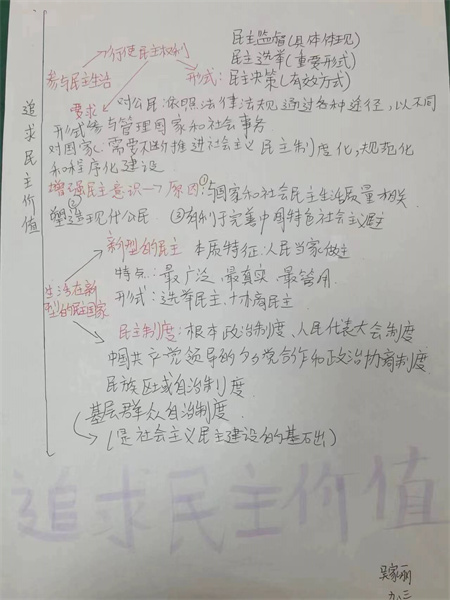 追求民主价值
参与民主生活
行使民主权利
民主监督(具体体现)
民主选举(重要形式)
形式:民主决策(有效方式)
要求
对公民:依照法律法规,通过各种途径,以不同
形式参与管理国家和社会事务
对国家:需要不断推进社会主义民主制度化,规范化
和程序化建设
增强民主意识→原因:①与国家和社会民主生活质量相关
②塑造现代公民 ③有利于完善中国特色社会主义民主
生活在新
型的民主国家
新型的民主 本质特征:人民当家做主
特点:最广泛、最真实、最管用
形式:选举民主、协商民主
民主制度:根本政治制度、人民代表大会制度
中国共产党领导的多党合作和政治协商制度
民族区域自治制度
基层群众自治制度
(是社会主义民主建设的基础)
追求民主价值
吴家丽
九.三